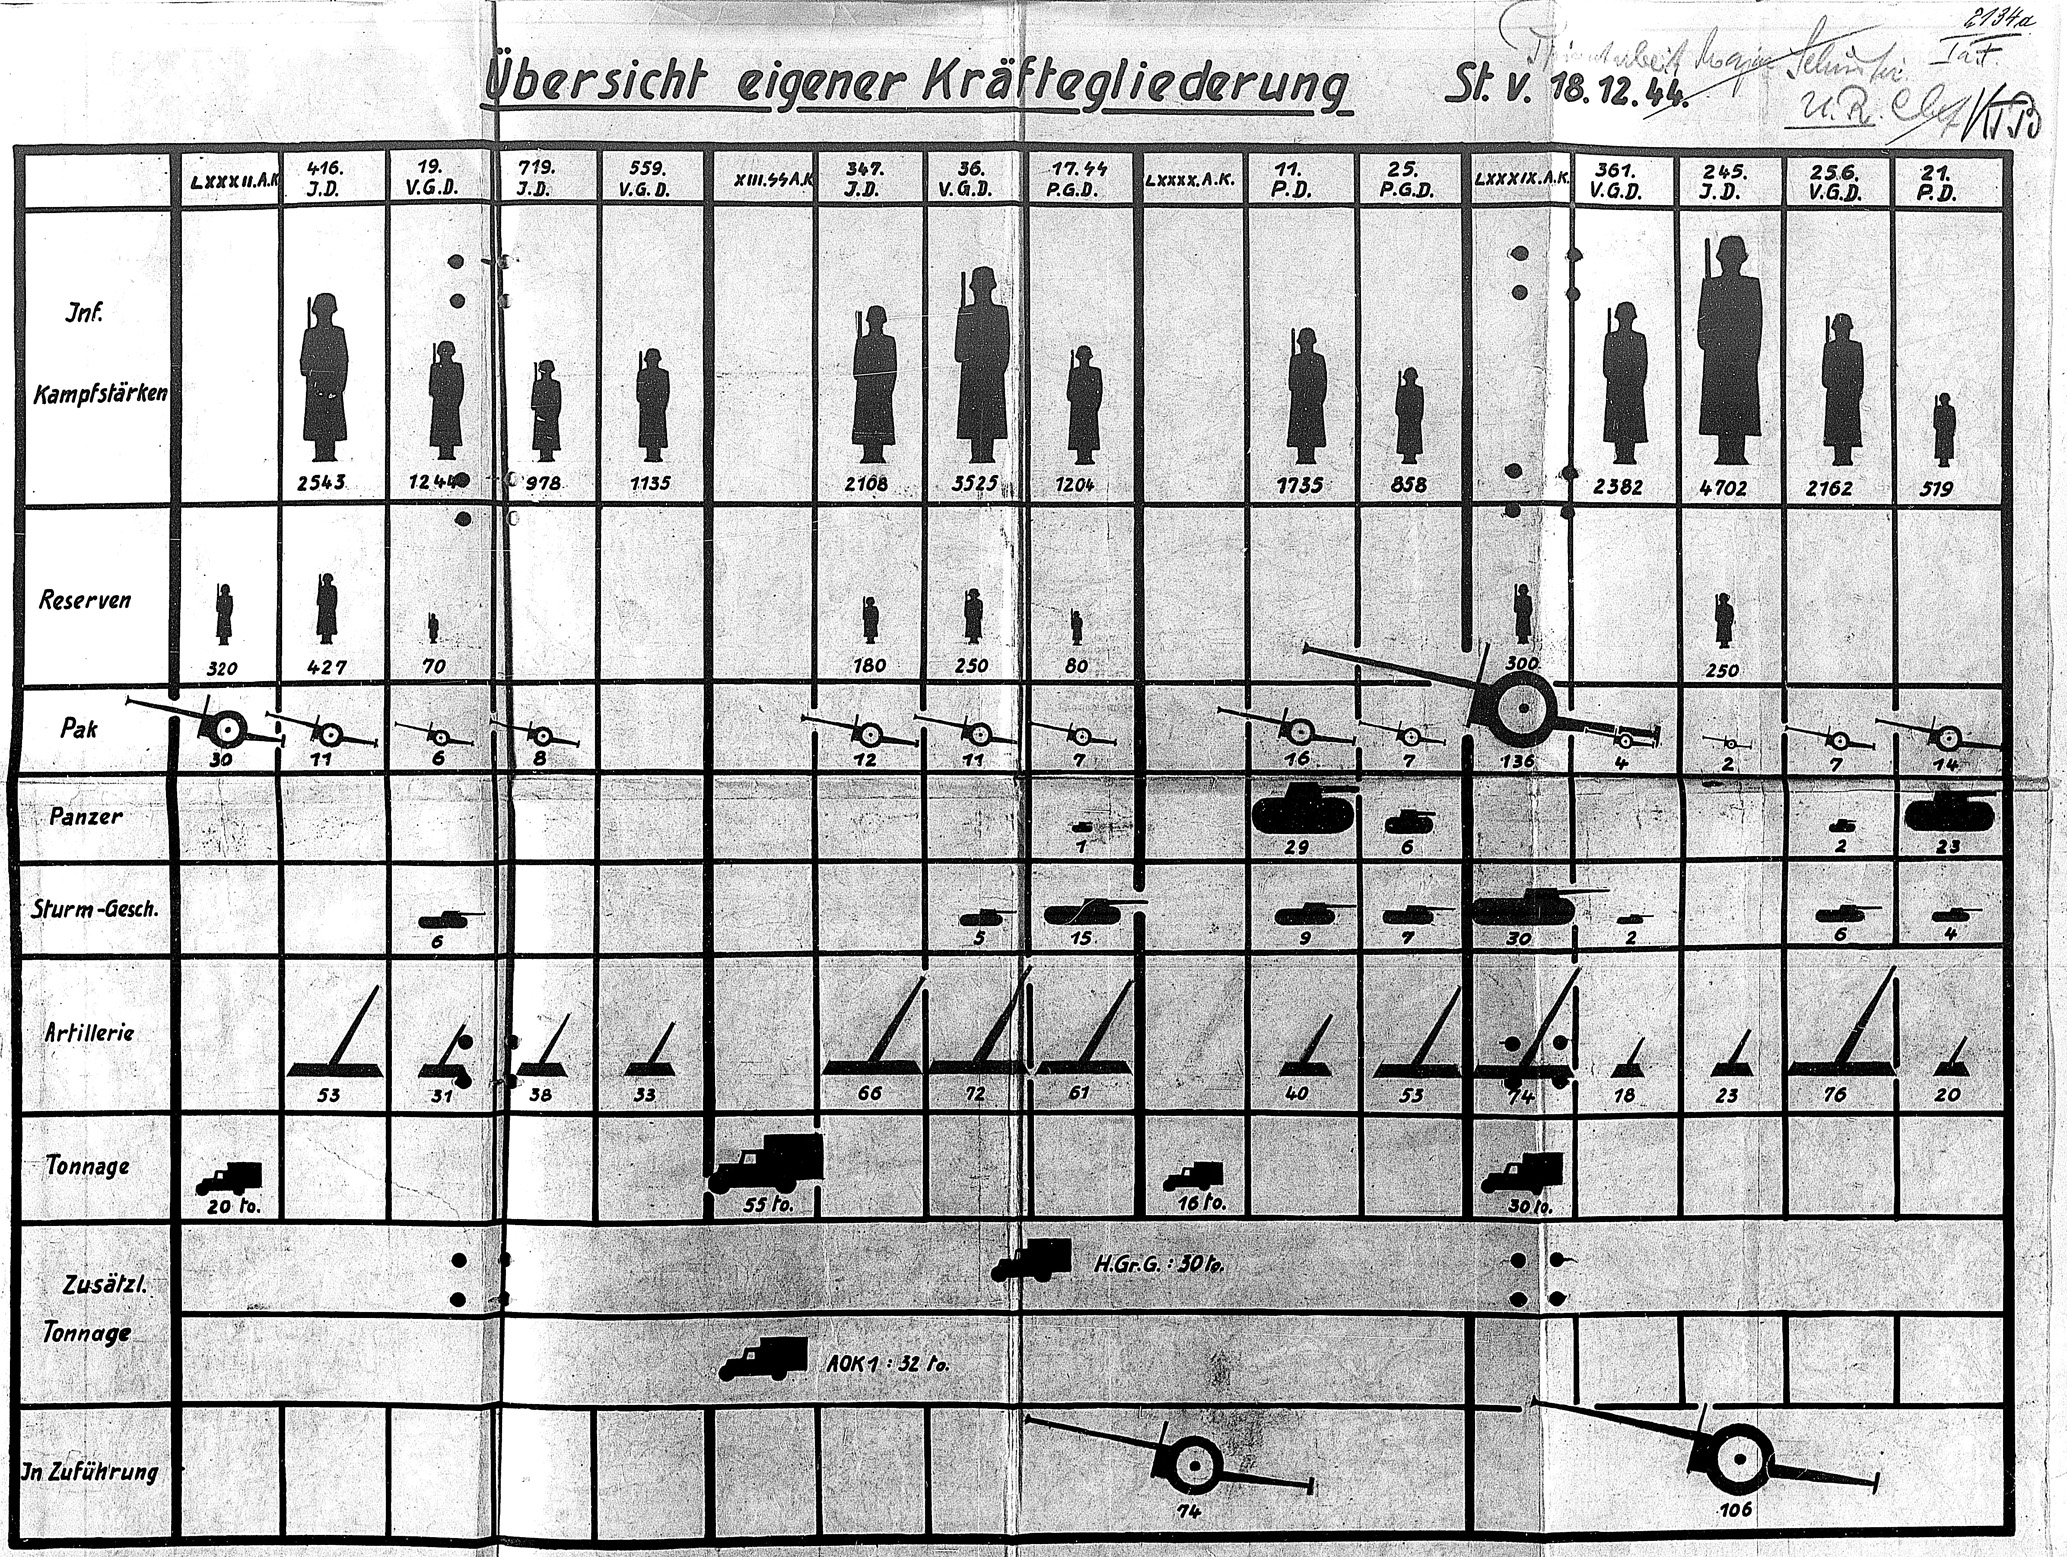 2134a
Ia F.
Übersicht eigener Kräftegliederung St. v. 18.12.44.
KTB
LXXXII.A.K 416. J.D. 19. V.G.D. 719. J.D. 559. V.G.D. XIII.SSA.K 347. J.D. 36. V.G.D. 17.SS P.G.D. LXXXX.A.K. 11. P.D. 25. P.G.D. LXXXIX.A.K. 361. V.G.D. 245. J.D. 256. V.G.D. 21. P.D.
Jnf.
Kampfstärken
2543 1244 978 1135 2108 3525 1204 1735 858 2382 4702 2162 519
Reserven
320 427 70 180 250 80 300 250
Pak
30 11 6 8 12 11 7 16 7 136 4 2 7 14
Panzer
1 29 6 2 23
Sturm-Gesch.
6 5 15 9 7 30 2 6 4
Artillerie
53 31 38 33 66 72 61 40 53 74 18 23 76 20
Tonnage
20 to. 55 to. 16 to. 30 to.
H.Gr.G. : 30 to.
Zusätzl.
Tonnage
AOK 1 : 32 to.
Jn Zuführung
74 106